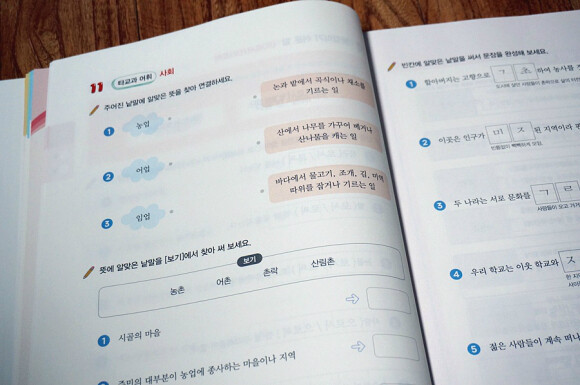 11 타교과 어휘 사회
주어진 낱말에 알맞은 뜻을 찾아 연결하세요.
1 농업
논과 밭에서 곡식이나 채소를
기르는 일
2 어업
산에서 나무를 가꾸어 베거나
산나물을 캐는 일
3 임업
바다에서 물고기, 조개, 김, 미역
따위를 잡거나 기르는 일
뜻에 알맞은 낱말을 [보기]에서 찾아 써 보세요.
보기
농촌 어촌 촌락 산림촌
1 시골의 마을
2 주민의 대부분이 농업에 종사하는 마을이나 지역
빈칸에 알맞은 낱말을 써서 문장을 완성해 보세요.
1 할아버지는 고향으로 ㄱ ㅊ 하여 농사를
2 이곳은 인구가 ㅁ ㅈ 된 지역이라
빈틈없이 빽빽하게 모임.
3 두 나라는 서로 문화를 ㄱ ㄹ
사람들이 오고 가
4 우리 학교는 이웃 학교와 ㅈ
5 젊은 사람들이 계속 떠나